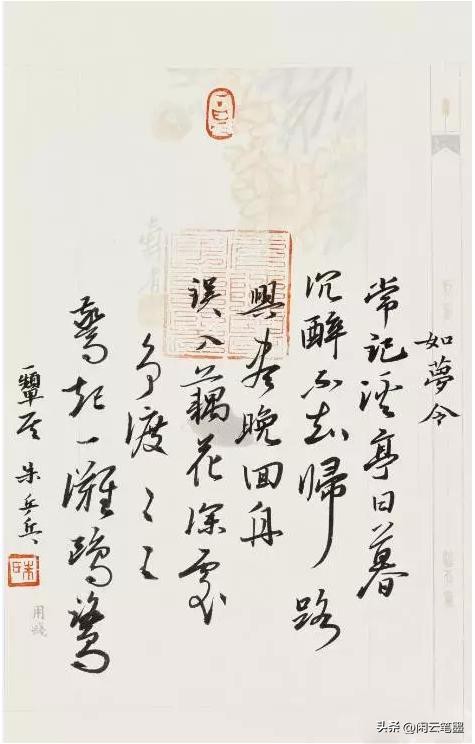 如夢令
常記溪亭日暮
沉醉不知歸路
興盡晚回舟
誤入藕花深處
争渡〻〻
驚起一灘鷗鷺
朱兵兵
用箋
头条 @闲云笔墨